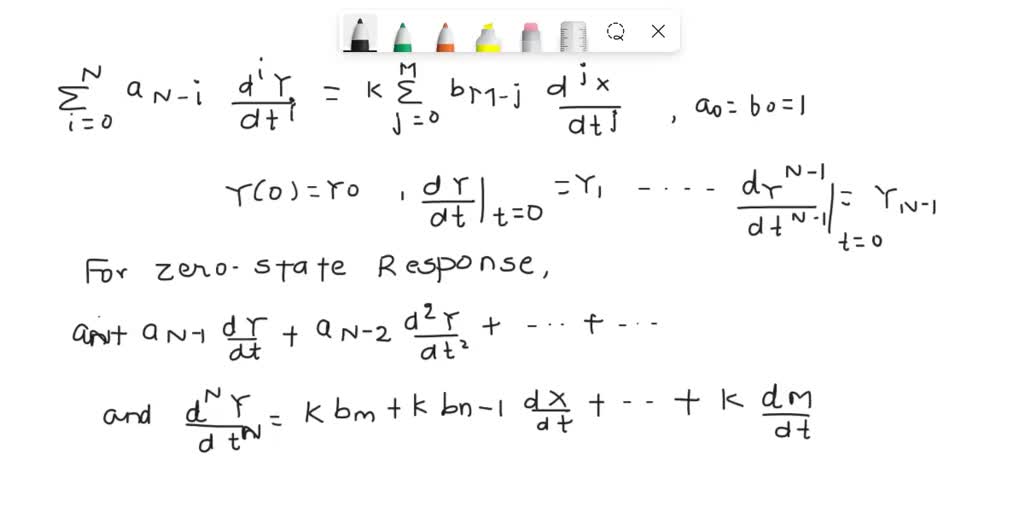 ∑_{i=0}^{N} a_{N-i} d^i Y/dt^i = k ∑_{j=0}^{M} b_{M-j} d^j x/dt^j , a_0 = b_0 = 1
Y(0) = Y0 , dY/dt |_{t=0} = Y_1 ---- dY^{N-1}/dt^{N-1} |_{t=0} = Y_{N-1}
For zero-state Response,
an+ a_{N-1} dY/dt + a_{N-2} d²Y/dt² + --- + ---
and d^N Y/dt^N = k bm + k bn-1 dx/dt + -- + k dM/dt